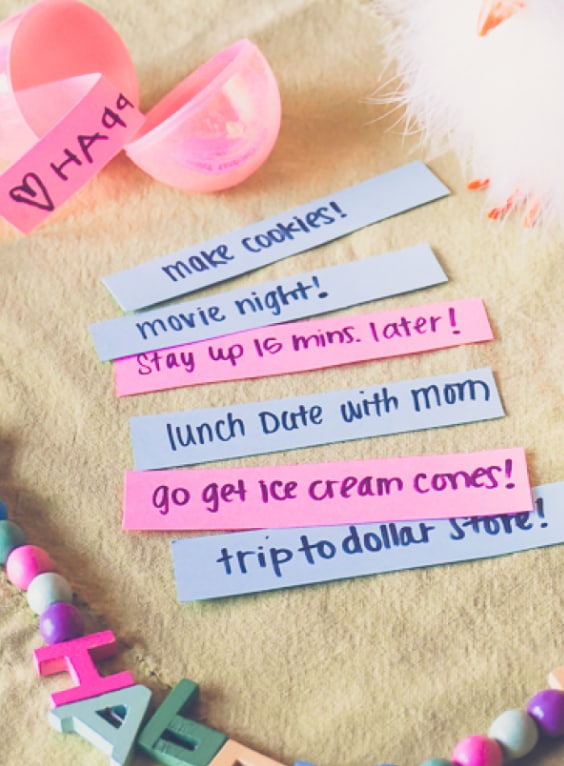 ♡ HA
make cookies!
movie night!
Stay up 15 mins. later!
lunch Date with mom
go get ice cream cones!
trip to dollar store!
HA